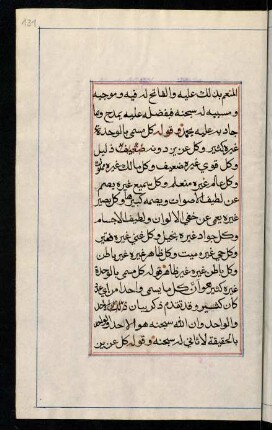 131
المنعم بذلك عليه والفاتح له فيه وموجبه
وسببه له سبحنه فبفضله عليه يمدح وبما
جاد به عليه يحمد وقوله كل مسمى بالوحدة
غيره كثير وكل عزيز دونه ذليل
وكل قوي غيره ضعيف وكل مالك غيره مملوك
وكل عالم غيره متعلم وكل سميع غيره يصم
عن لطيف الاصوات ويصمه كبيرها وكل بصير
غيره يعمى عن خفي الالوان ولطيف الاجسام
وكل جواد غيره بخيل وكل غني غيره فقير
وكل حي غيره ميت وكل ظاهر غيره غير باطن
وكل باطن غيره غير ظاهر قوله كل مسمى بالوحدة
غيره كثير هو ان كل ما يسمى واحدا من اي
كان كثير وقد تقدم ذكر بيان
والواحد وان الله سبحنه هو الاحد والواحد
بالحقيقة لا ثاني له سبحنه وقوله كل عزيز